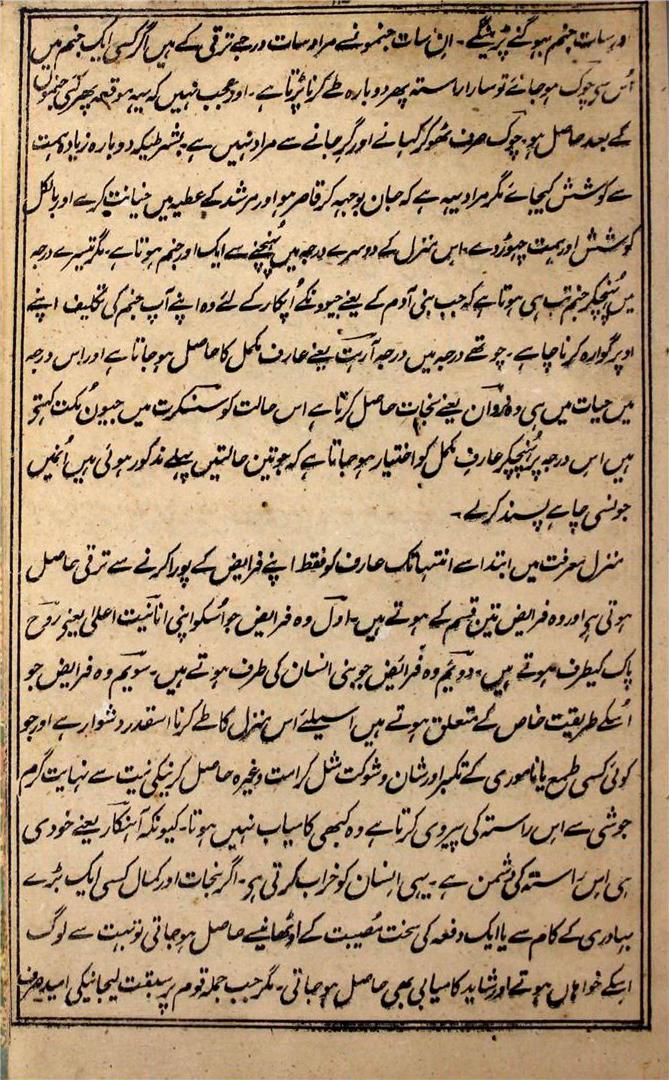 اور سات جنم ہوگنے پڑینگے ۔ ان سات جنمونسے مراد سات درجے ترقی کے ہیں اگر کسی ایک جنم میں
اُس سی چوک ہوجائے تو سارا راستہ پھر دوبارہ طے کرنا پڑتا ہے ۔ اور عجب نہیں کہ یہہ موقعہ پھر کئی جنموں
کے بعد حاصل ہو ۔ چوک صرف ٹھوکر کہانے اور گر جانے سے مراد نہیں ہے بشرطیکہ دوبارہ زیادہ ہمت
سے کوشش کیجائے مگر مراد یہہ ہے کہ جان بوجہہ کر قاصر ہو اور مرشد کے عطیہ میں خیانت کرے اور بالکل
کوشش اور ہمت چہوڑدے ۔ اس منزل کے دوسرے درجہ میں پُہنچنے سے ایک اور جنم ہوتا ہے ۔ مگر تیسرے درجہ
میں پُہنچکر جنم تب ہی ہوتا ہے کہ جب بنی آدم کے یعنے جیوونکے اُپکار کے لئے وہ اپنے آپ جنم کی تکلیف اپنے
اوپر گوارہ کرنا چاہے ۔ چوتھے درجہ میں درجہ آرہت یعنے عارف مکمل کا حاصل ہوجاتا ہے اور اس درجہ
میں حیات میں ہی وہ نروان یعنے نجات حاصل کرتا ہے اس حالت کو سنسکرت میں جیون مُکت کہتے
ہیں اس درجہ پر پُہنچکر عارف مکمل کو اختیار ہوجاتا ہے کہ جو تین حالتیں پہلے مذکور ہوئی ہیں اُنمیں
جونسی چاہے پسند کرلے ۔
منزل معرفت میں ابتدا سے انتہا تک عارف کو فقط اپنے فرایض کے پورا کرنے سے ترقی حاصل
ہوتی ہی اور وہ فرایض تین قسم کے ہوتے ہیں ۔ اول وہ فرایض جو اُسکو اپنی انانیت اعلیٰ یعنی روح
پاک کیطرف ہوتے ہیں ۔ دویم وہ فرائض جو بنی انسان کی طرف ہوتے ہیں ۔ سویم وہ فرایض جو
اُسکے طریقیت خاص کے متعلق ہوتے ہیں اسیلئے اس منزل کا طے کرنا اسقدر دشوار ہے اور جو
کوئی کسی طمع یا ناموری کے تکبر اور شان و شوکت مثل کرامت وغیرہ حاصل کرنیکی نیت سے نہایت گرم
جوشی سے اس راستہ کی پیروی کرتا ہے وہ کبھی کامیاب نہیں ہوتا ۔ کیونکہ آہنکار یعنے خودی
ہی اس راستہ کی دشمن ہے ۔ یہی انسان کو خراب کرتی ہی ۔ اگر نجات اور کمال کسی ایک بڑے
بہادری کے کام سے یا ایک دفعہ کی سخت مصیبت کے اوٹھانیسے حاصل ہوجاتی تو بہت سے لوگ
اسکے خواہاں ہوتے اور شاید کامیابی بھی حاصل ہوجاتی ۔ مگر جب جملہ قوم پر سبقت لیجانیکی امید صرف